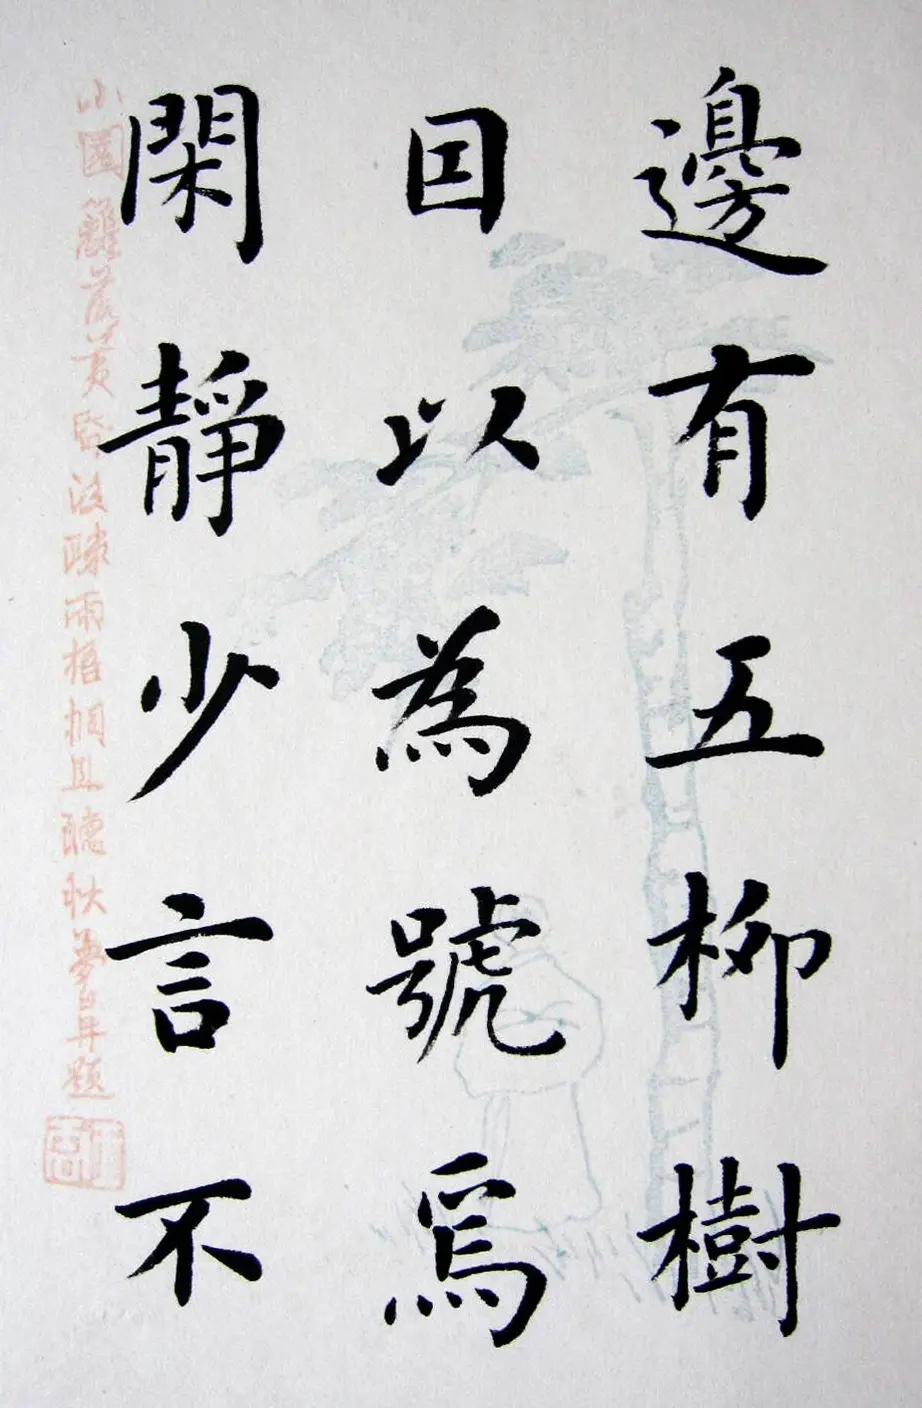 邊有五柳樹
囙以為號焉
閑靜少言不
小園籬落黃昏後疎雨梧桐且聽秋夢題